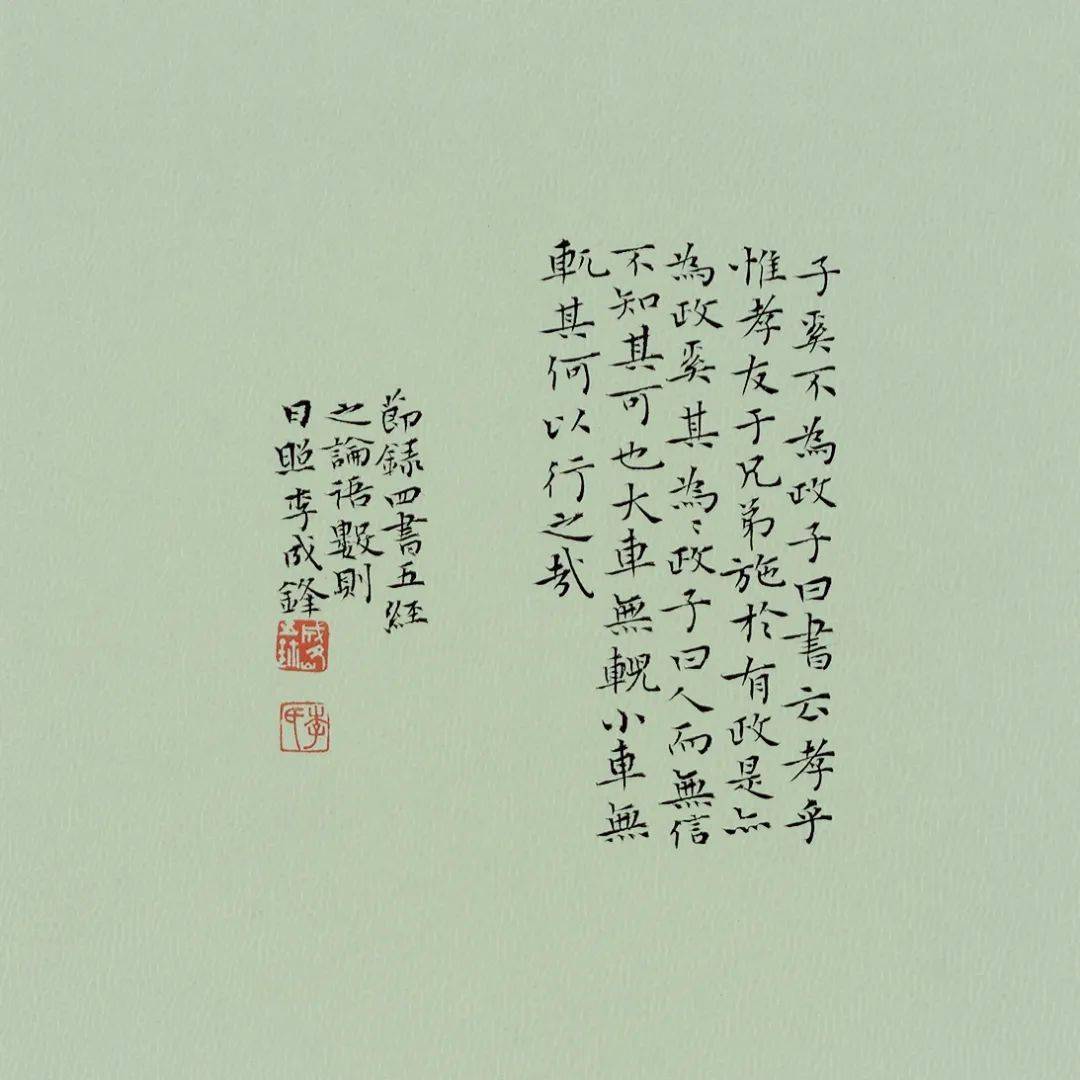 子奚不為政子曰書云孝乎
惟孝友于兄弟施於有政是亦
為政奚其為〻政子曰人而無信
不知其可也大車無輗小車無
軏其何以行之哉
節録四書五経
之論語數則
日照李成鋒
李